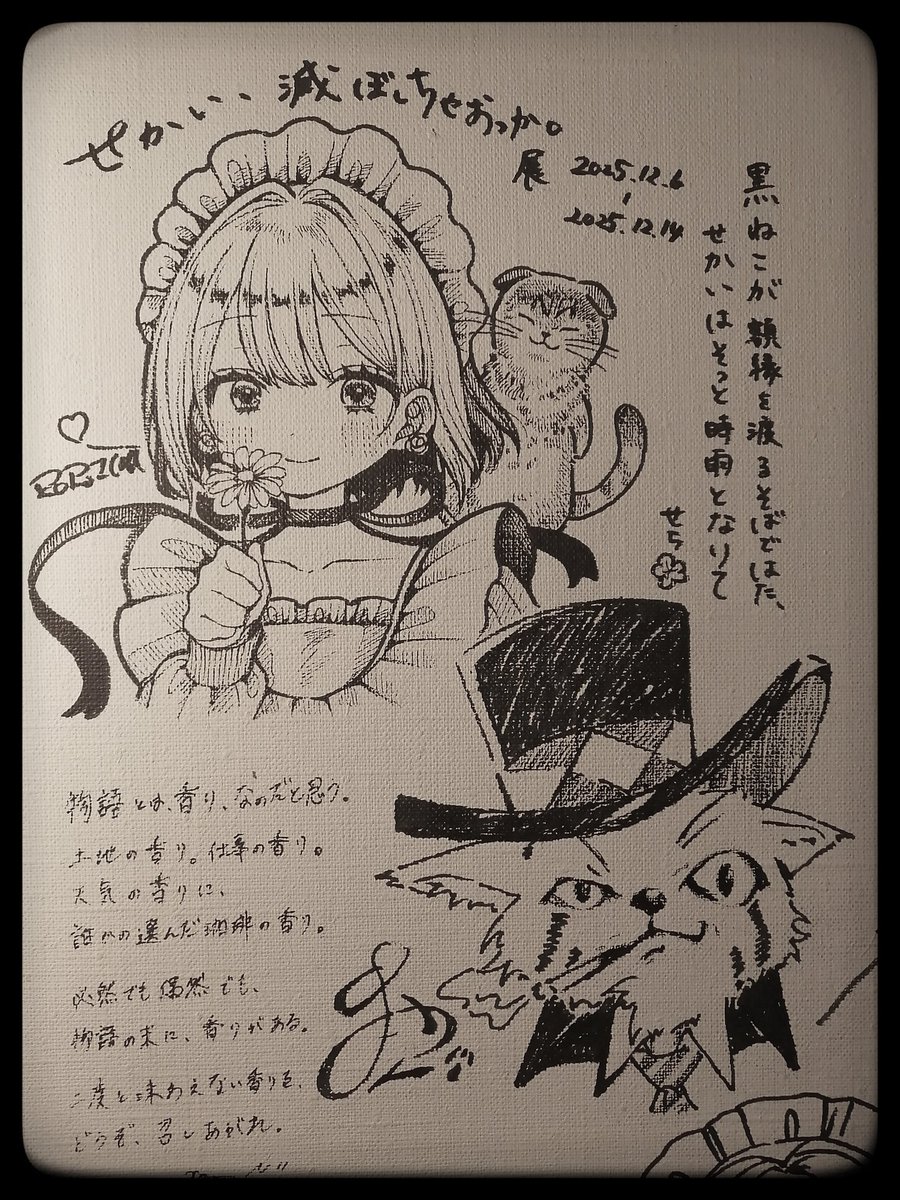 せかい、滅ぼしちゃおっか。
展 2025.12.6
-
2025.12.14
黒ねこが額縁を渡るそばでほた、
せかいはそっと時雨となりて
せち
物語とは、香り、なのだと思う。
土地の香り。仕事の香り。
天気の香りに、
誰かの選んだ珈琲の香り。
必然でも偶然でも、
物語の末に、香りがある。
二度と味わえない香りを、
どうぞ、召しあがれ。